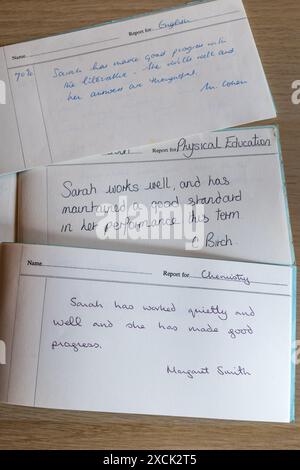 Name Report for English
70% Sarah has made good progress with
the literature - she writes well and
her answers are thoughtful.
Mr. Cohen
Report for Physical Education
Sarah works well, and has
maintained a good standard
in her performance this term
C Birch
Name Report for Chemistry
Sarah has worked quietly and
well and she has made good
progress.
Margaret Smith
alamy
Image ID: 2XCK2T5
www.alamy.com